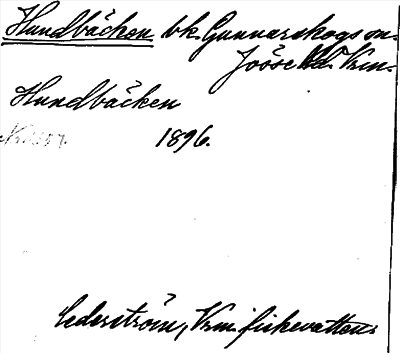 Hundbäcken bk. Gunnarskogs sn.
Jösse hd. Vrm.
Hundbäcken
1896.
Cederström, Vrm. fiskevatten